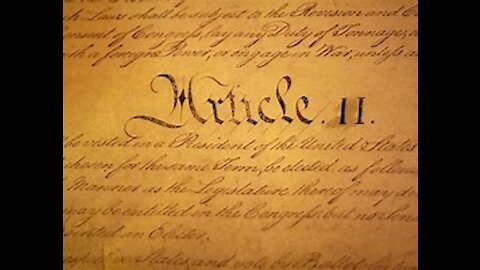 ch Laws shall be subject to the Revision and
onsent of Congress, lay any Duty of Tonnage,
ith a foreign Power, or engage in War, unless
Article. II.
be vested in a President of the United States
chosen for the same Term, be elected, as follow
Manner as the Legislature thereof may
may be entitled in the Congress: but no Sena
ointed an Elector.
States, and vote by Ballot